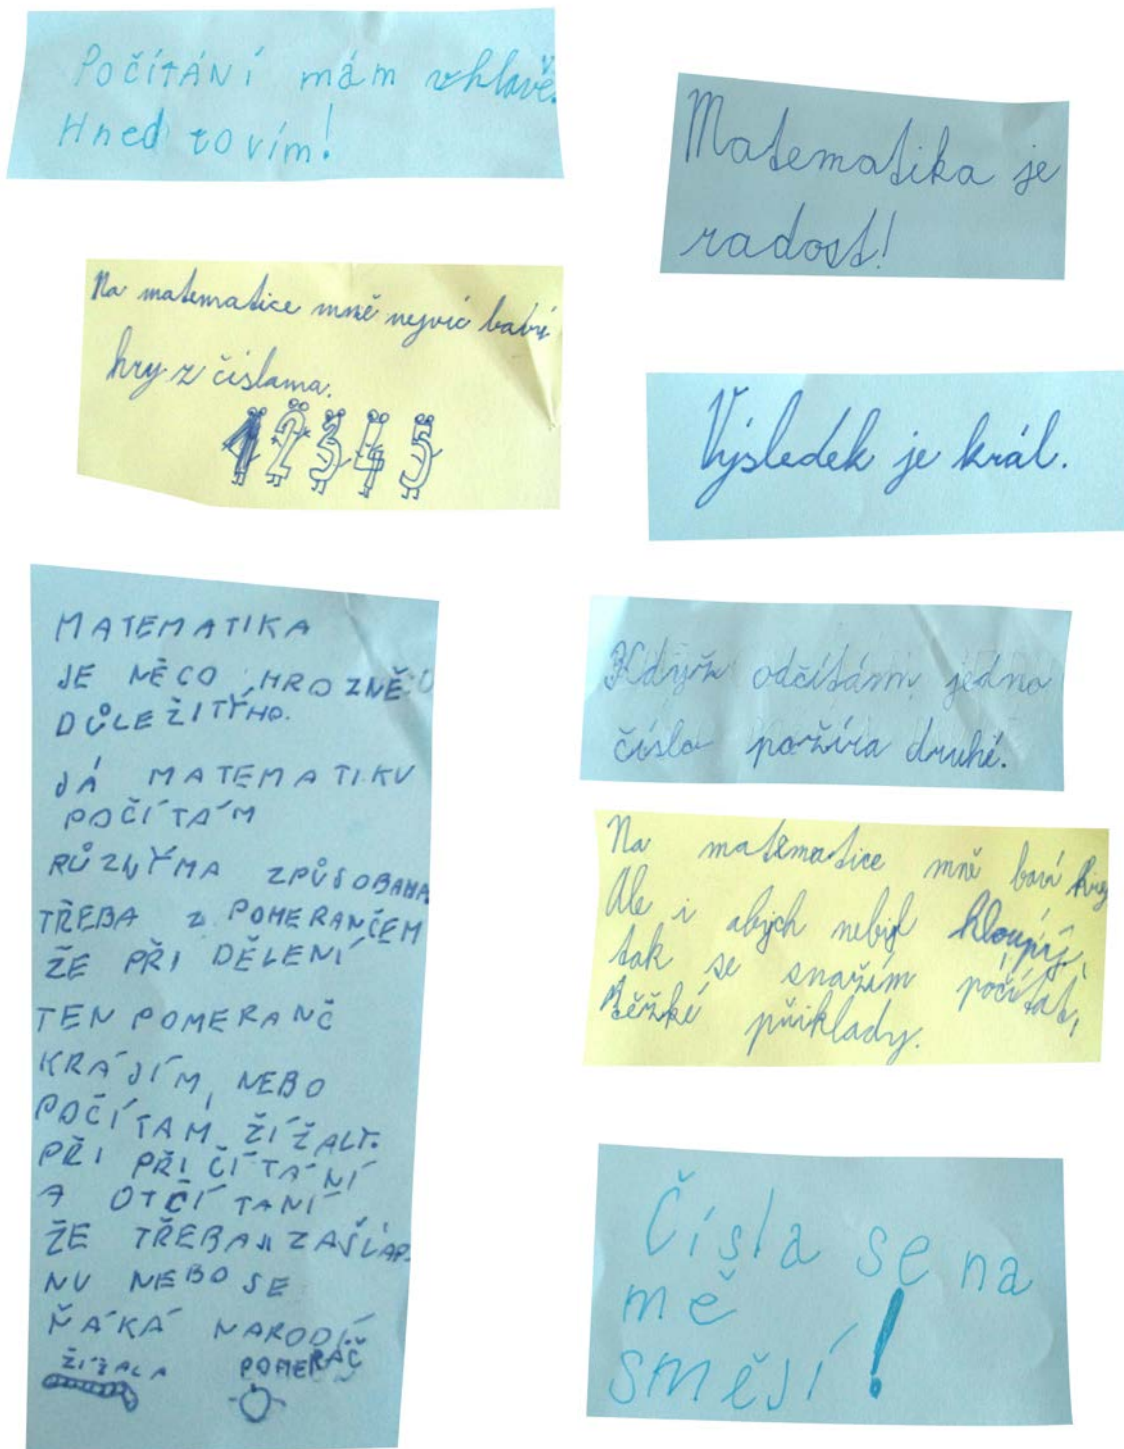 Počítání mám v hlavě.
Hned to vím!
Matematika je
radost!
Na matematice mně nejvíc baví
hry z číslama.
1 2 3 4 5
Výsledek je král.
MATEMATIKA
JE NĚCO HROZNĚ
DŮLEŽITÝHO.
JÁ MATEMATIKU
POČÍTÁM
RŮZNÝMA ZPŮSOBAMA
TŘEBA Z POMERANČEM
ŽE PŘI DĚLENÍ
TEN POMERANČ
KRÁJÍM, NEBO
POČÍTAM ŽÍŽALY.
PŘI PŘIČÍTÁNÍ
A OTČÍTANÍ
ŽE TŘEBA ZAŠLAP
NU NEBO SE
ŇÁKÁ NARODÍ
ŽÍŽALA POMERAČ
Když odčítám jedno
číslo požírá druhé.
Na matematice mně baví hry
Ale i abych nebyl hloupý,
tak se snažím počítat,
těžké příklady.
Čísla se na
mě
smějí!